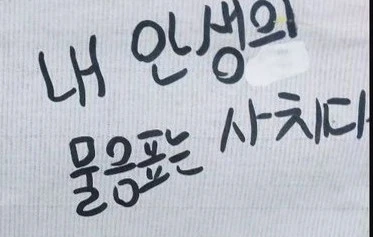 내 인생의
물음표는 사치다